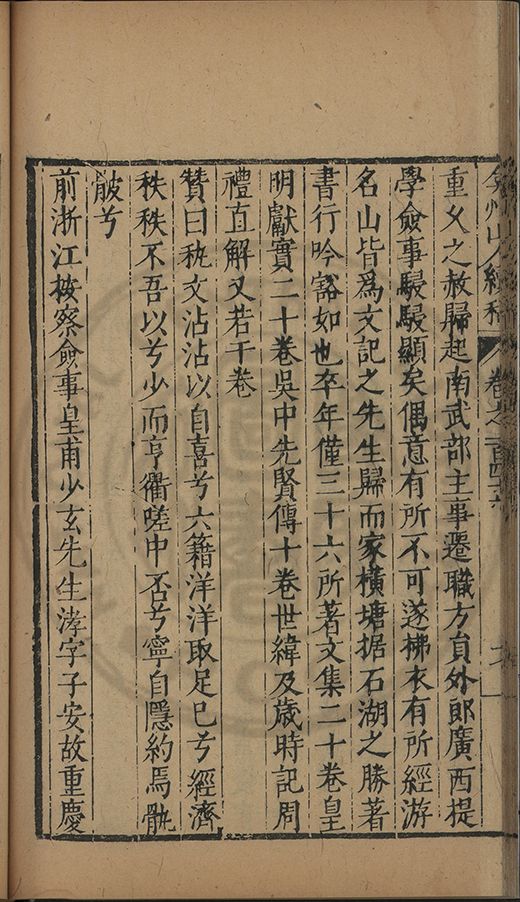 弇州山人續稿 卷之一百四十六
重义之赦歸起南武部主事遷職方員外郎廣西提
學僉事駸駸顯矣偶意有所不可遂拂衣有所經游
名山皆爲文記之先生歸而家橫塘据石湖之勝著
書行吟豁如也卒年僅三十六所著文集二十卷皇
明獻實二十卷吳中先賢傳十卷世緯及歲時記周
禮直解又若干卷
贊曰秇文沾沾以自喜兮六籍洋洋取足巳兮經濟
秩秩不吾以兮少而亨衢嗟中否兮寧自隱約焉骩
骳兮
前浙江按察僉事皇甫少玄先生涍字子安故重慶